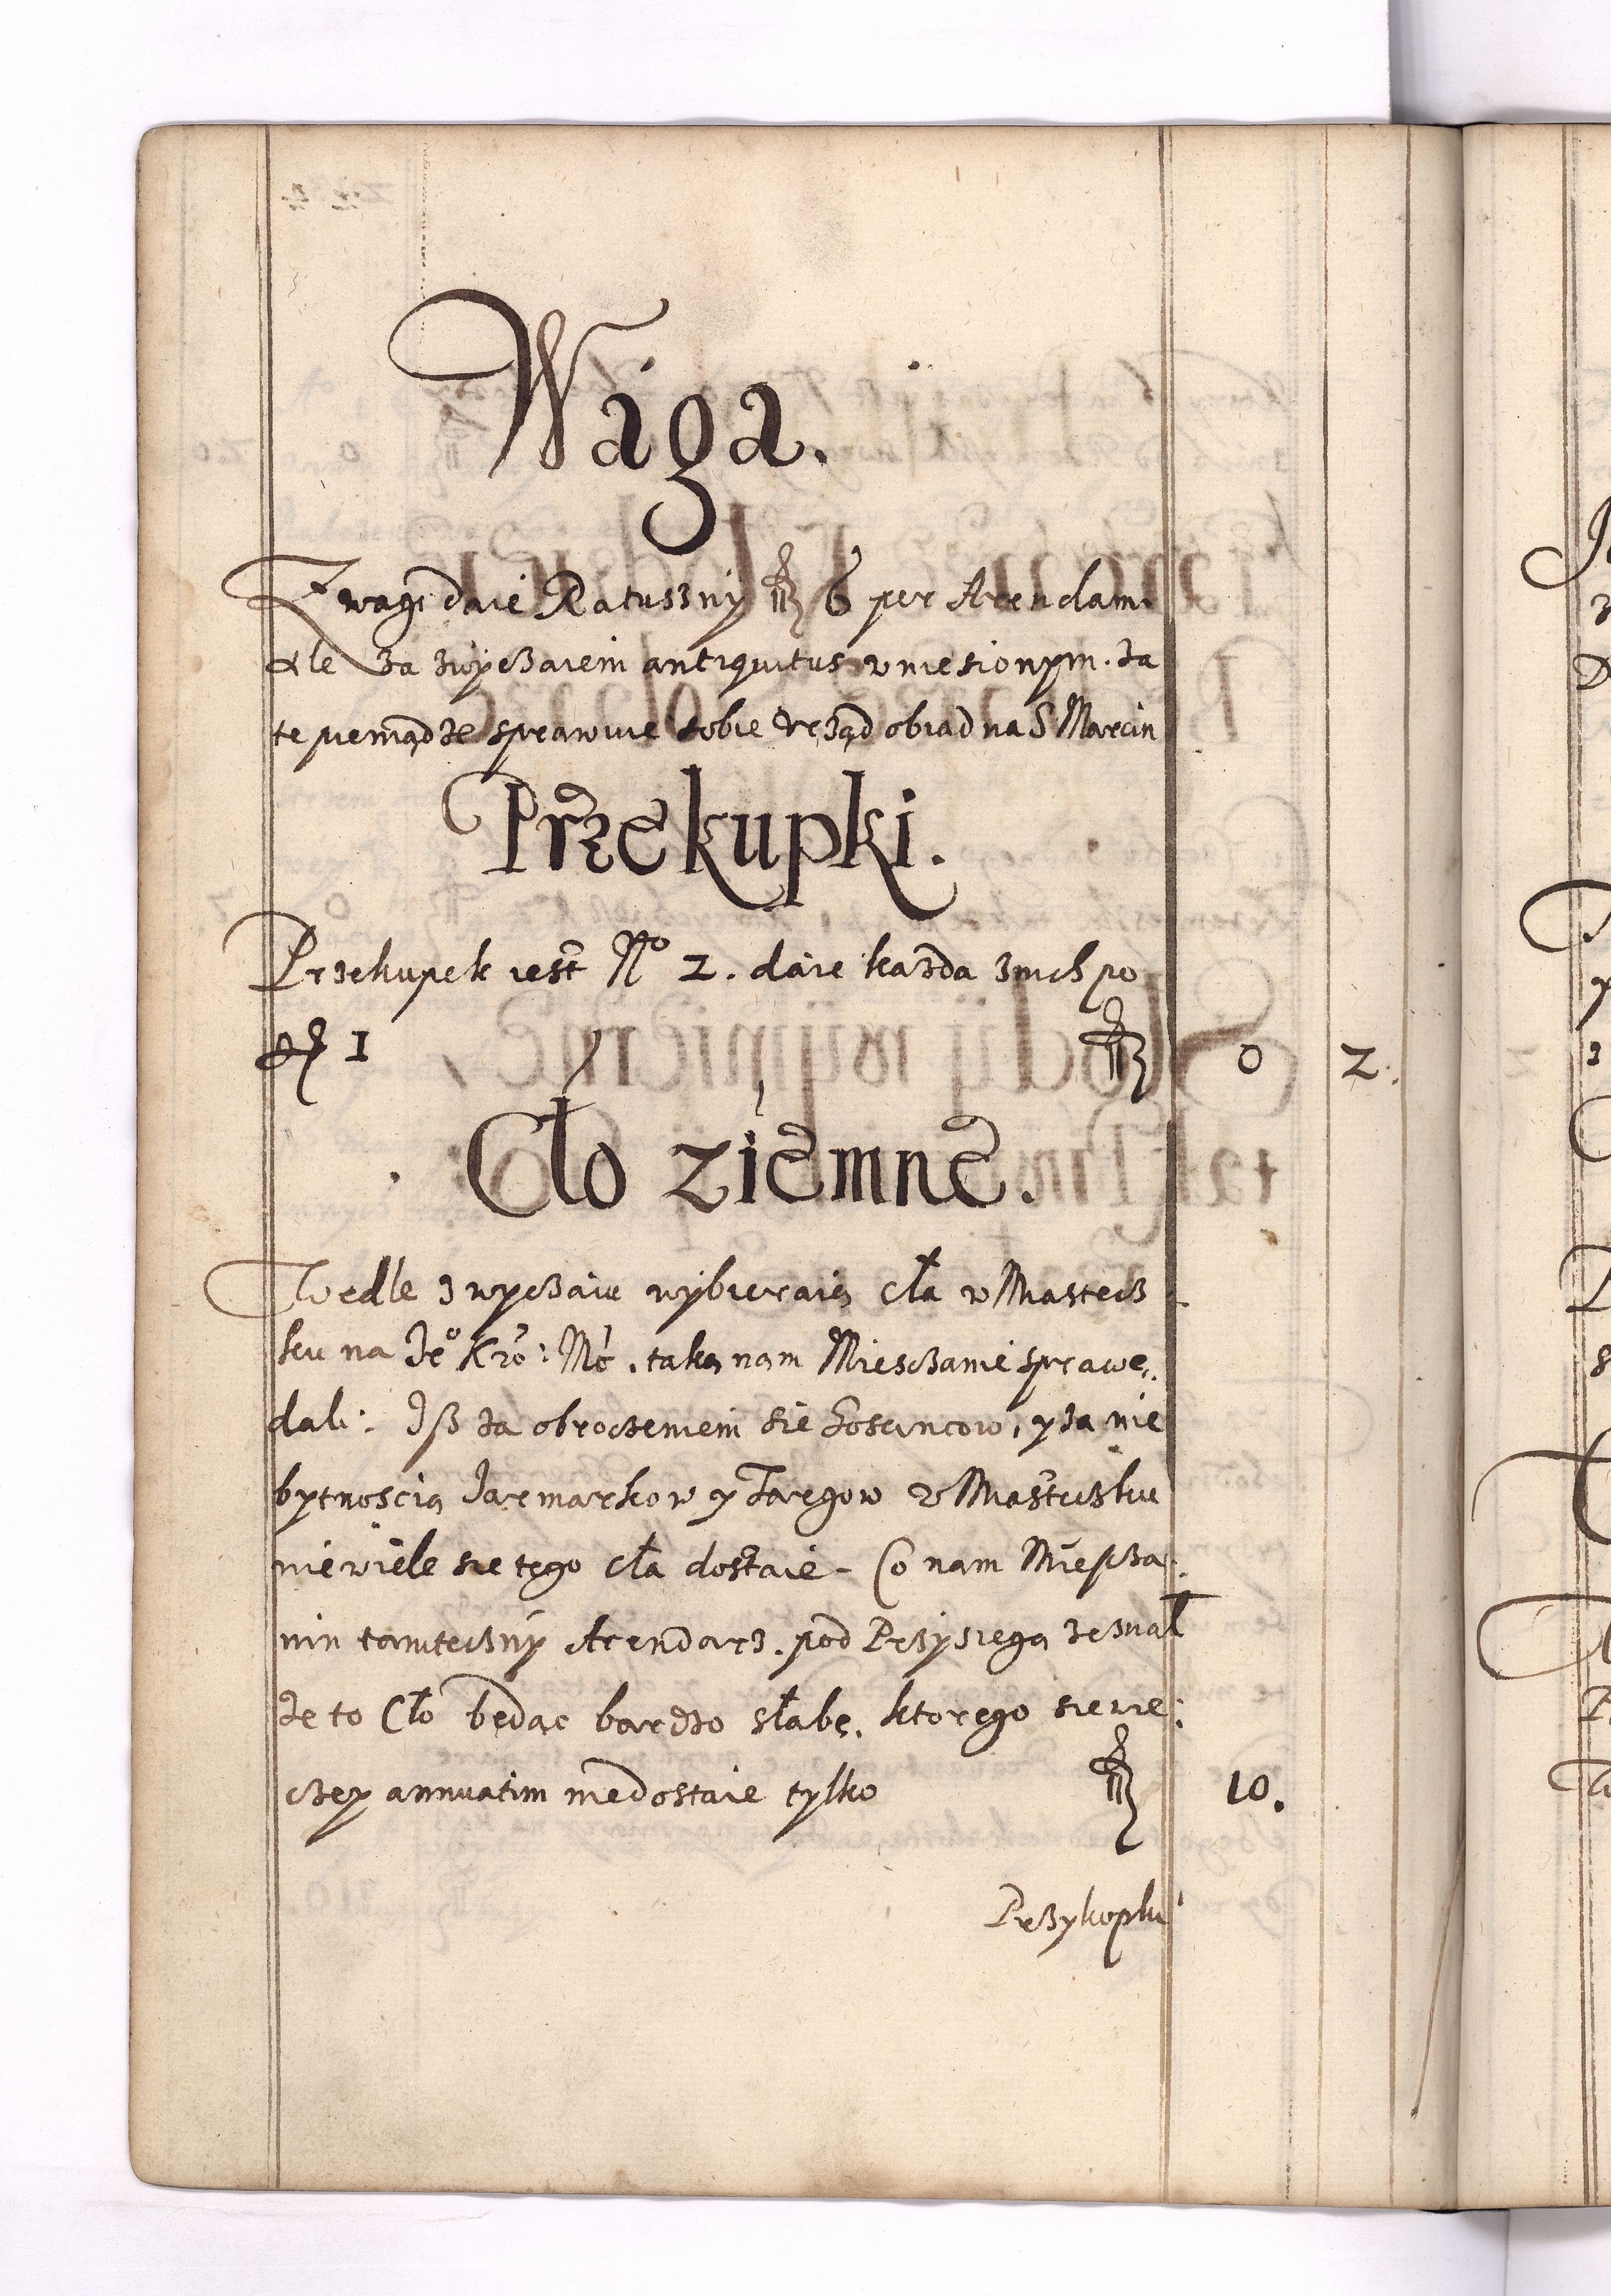 Waga.
Z wagi daie Ratuszny fl 6 per Arendam.
Ale za zwyczaiem antiquitus wniesionym. za
te pieniądze sprawuie sobie Vrząd obiad na S Marcin
Przekupki.
Przekupek iest No 2. daie kazda znich po
gr 1 fl 0 2.
Cło ziemne.
Wedle zwyczaiu wybieraią cła w Miastecz
ku na Je° Kro: Mć. taką nam Mieszczanie sprawę
dali: Jsz za obroczeniem sie Goscincow, y za nie
bytnoscią Jarmarkow y Targow w Miasteczku
niewiele sie tego cła dostaie - Co nam Miescza:
nin tamteczny Arendarz. pod Przysięgą zeznał
ze to Cło będąc bardzo słabe, ktorego sie wie:
czey annuatim niedostaie tylko fl 10.
Przykopki